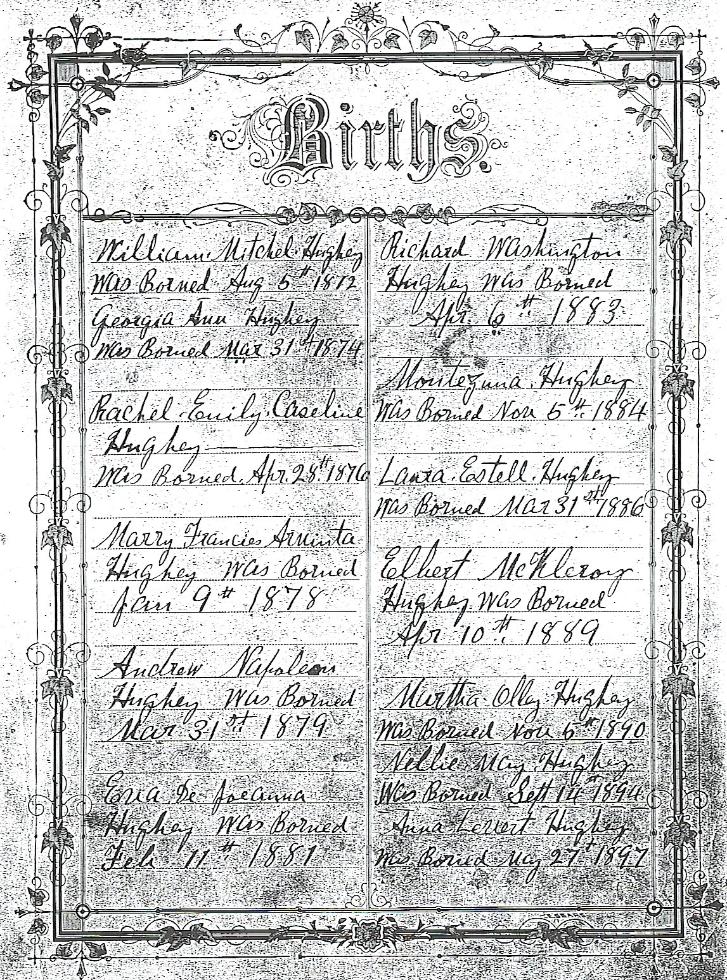 Births.
William Mitchel Hughey
Was Borned Aug 5th 1872
Georgia Ann Hughey
Was Borned Mar 31st 1874
Rachel Emily Caseline
Hughey
Was Borned Apr. 28th 1876
Marry Francies Arminta
Hughey Was Borned
Jan 9th 1878
Andrew Napoleon
Hughey Was Borned
Mar 31st 1879
De Joeanna
Hughey Was Borned
Feb 11th 1881
Richard Washington
Hughey Was Borned
Apr 6th 1883
Montezuna Hughey
Was Borned Nov 5th 1884
Laura Estell Hughey
Was Borned Mar 31st 1886
Elbert McKleroy
Hughey Was Borned
Apr 10th 1889
Martha Olly Hughey
Was Borned Nov 5th 1890
Nellie May Hughey
Was Borned Sett 14th 1894
Anna Hughey
Was Borned May 27th 1897